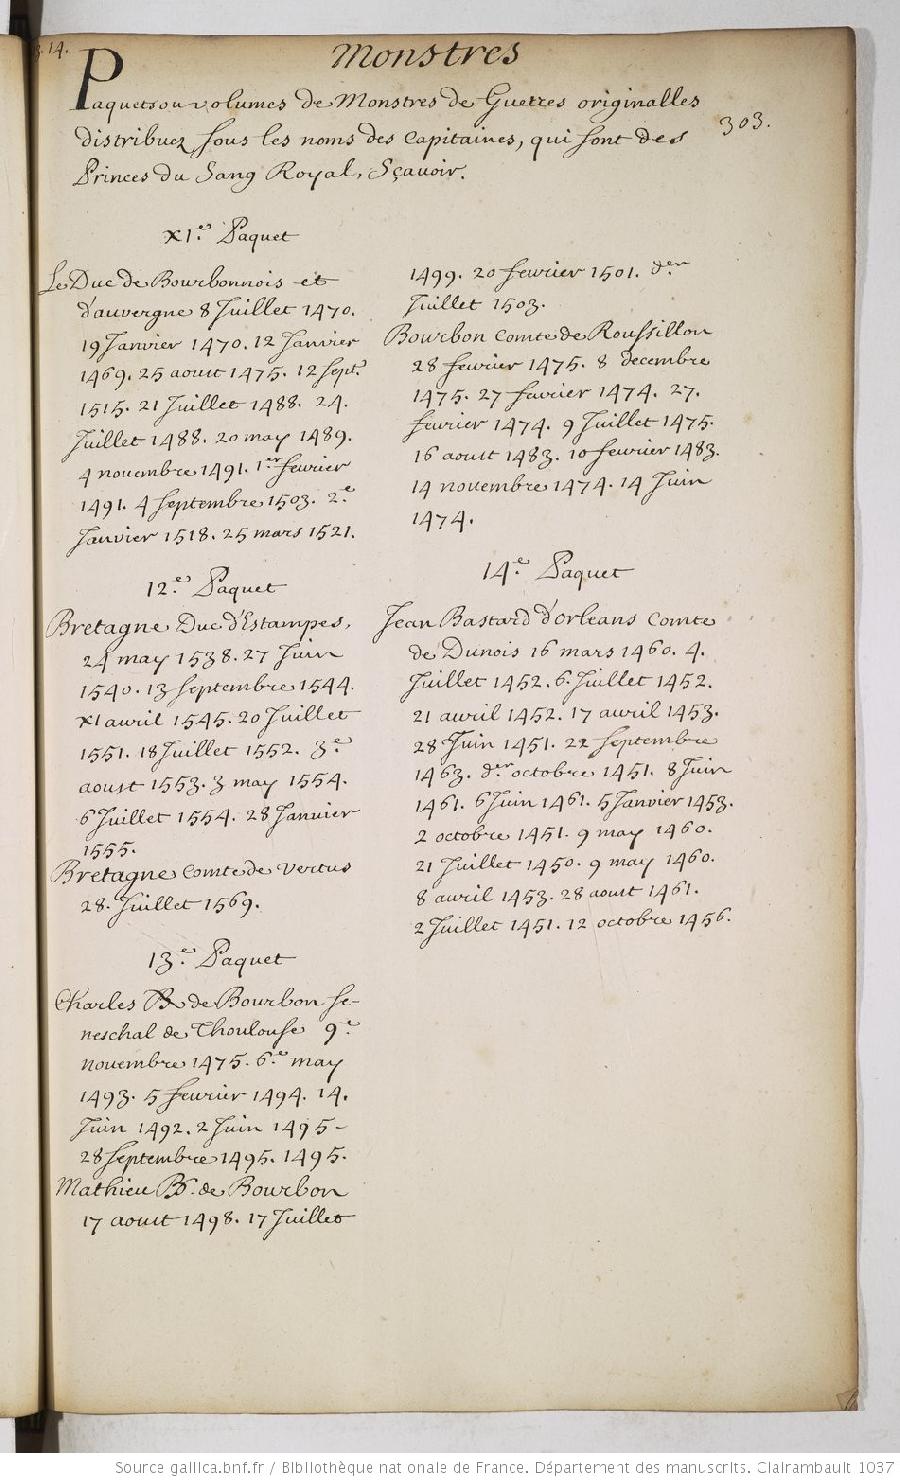 14.
Monstres
Paquets ou volumes de Monstres de Guerres originalles
303.
distribuez sous les noms des Capitaines, qui sont des
Princes du Sang Royal, Sçavoir.
XI.e Paquet
Le Duc de Bourbonnois et
d'auvergne 8 Juillet 1470.
19 Janvier 1470. 12 Janvier
1469. 25 aoust 1475. 12 Sept.
1515. 21 Juillet 1488. 24.
Juillet 1488. 20 may 1489.
4 novembre 1491. 1er fevrier
1491. 4 septembre 1503. 2.e
Janvier 1518. 25 mars 1521.
12.e Paquet
Bretagne Duc d'Estampes,
24 may 1538. 27 Juin
1540. 13 septembre 1544.
XI avril 1545. 20 Juillet
1551. 18 Juillet 1552. 3.e
aoust 1553. 3 may 1554.
6 Juillet 1554. 28 Janvier
1555.
Bretagne Comte de Vertus
28. Juillet 1569.
13.e Paquet
Charles B de Bourbon se-
neschal de Thoulouse 9.e
novembre 1475. 6.e may
1493. 5 fevrier 1494. 14.
Juin 1492. 2 Juin 1495-
28 septembre 1495. 1495.
Mathieu B. de Bourbon
17 aoust 1498. 17 Juillet
1499. 20 fevrier 1501. der
Juillet 1503.
Bourbon Comte de Roussillon
28 fevrier 1475. 8 decembre
1475. 27 fevrier 1474. 27.
fevrier 1474. 9 Juillet 1475.
16 aoust 1483. 10 fevrier 1483.
14 novembre 1474. 14 Juin
1474.
14.e Paquet
Jean Bastard d'orleans Comte
de Dunois 16 mars 1460. 4.
Juillet 1452. 6. Juillet 1452.
21 avril 1452. 17 avril 1453.
28 Juin 1451. 22 septembre
1463. der octobre 1451. 8 Juin
1461. 6 Juin 1461. 5 Janvier 1453.
2 octobre 1451. 9 may 1460.
21 Juillet 1450. 9 may 1460.
8 avril 1453. 28 aoust 1461.
2 Juillet 1451. 12 octobre 1456.
Source gallica.bnf.fr / Bibliothèque nationale de France. Département des manuscrits. Clairambault 1037